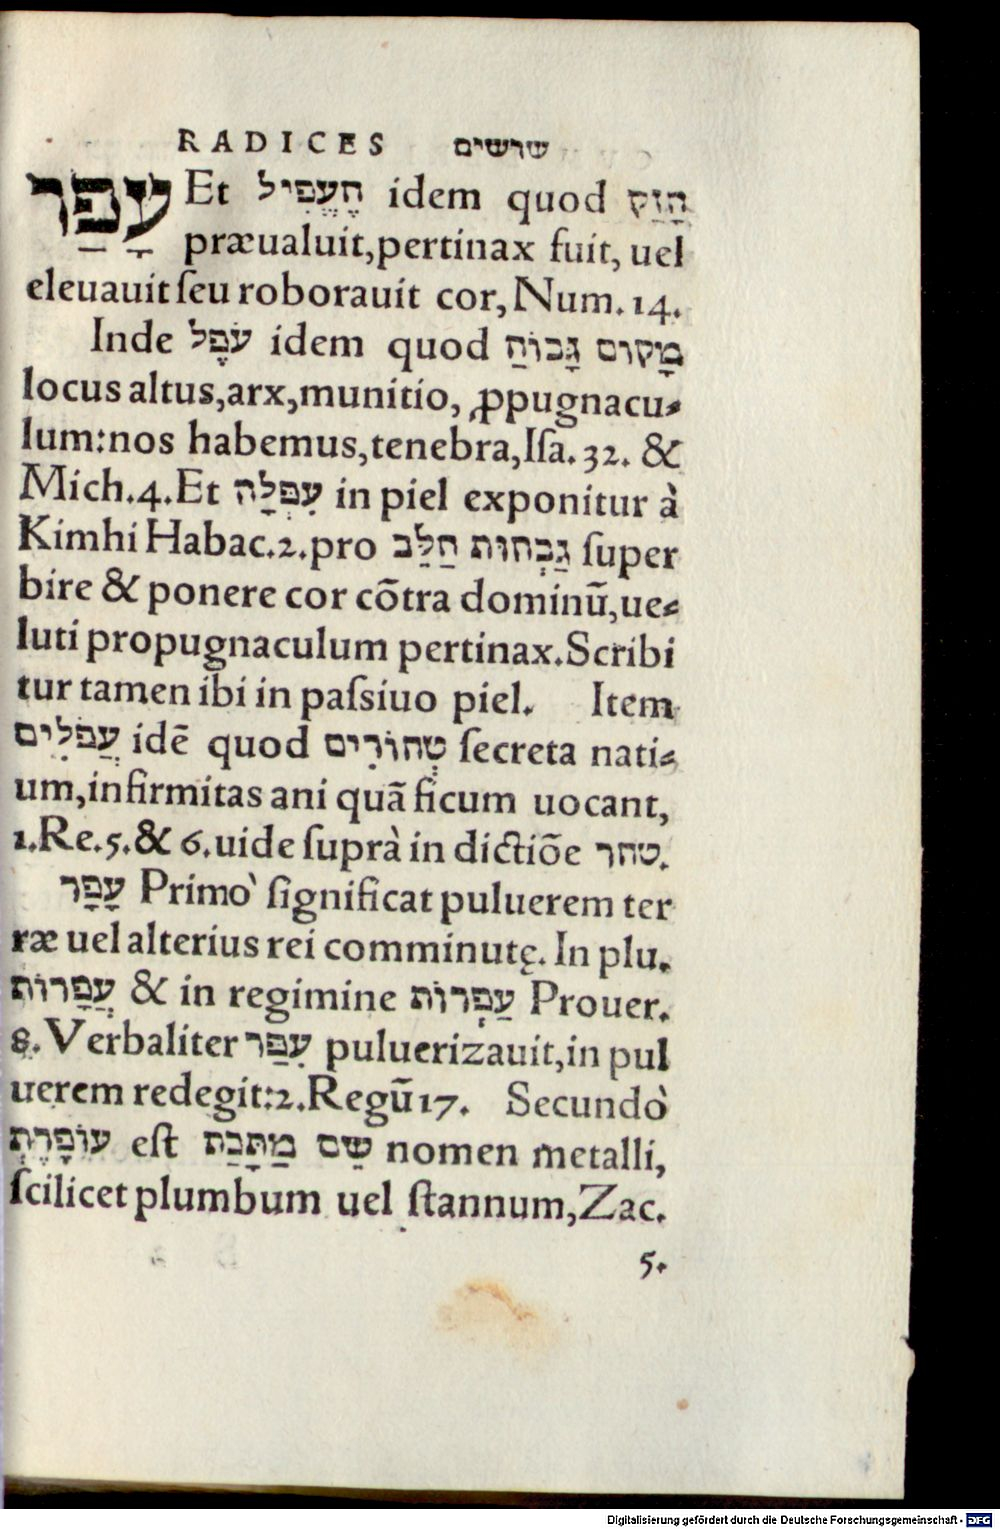 RADICES שרשים
עָפַר Et הֶעֱפִיל idem quod הָזַק
præualuit, pertinax fuit, uel
eleuauit ſeu roborauit cor, Num. 14.
Inde עֹפֶל idem quod מָקוֹם גָּבוֹהַּ
locus altus, arx, munitio, ꝓpugnacu⸗
lum: nos habemus, tenebra, Iſa. 32. &
Mich. 4. Et עִפְּלָה in piel exponitur à
Kimhi Habac. 2. pro גַּבְהוּת הַלֵּב ſuper
bire & ponere cor cõtra dominũ, ue⸗
luti propugnaculum pertinax. Scribi
tur tamen ibi in paſsiuo piel. Item
עֲפֹלִים idẽ quod טְחוֹרִים ſecreta nati⸗
um, infirmitas ani quã ficum uocant,
1. Re. 5. & 6. uide ſuprà in dictiõe טחר.
עָפָר Primò ſignificat puluerem ter
ræ uel alterius rei comminutę. In plu.
עֲפָרוֹת & in regimine עַפְרוֹת Prouer.
8. Verbaliter עִפַּר puluerizauit, in pul
uerem redegit: 2. Regũ 17. Secundò
עוֹפֶרֶת eſt שֵׁם מַתֶּכֶת nomen metalli,
ſcilicet plumbum uel ſtannum, Zac.
5.
Digitalisierung gefördert durch die Deutsche Forschungsgemeinschaft - DFG